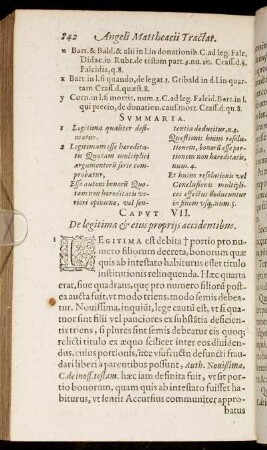 842 Angeli Mattheacii Tractat.
u Bart. & Bald. & alii in l.in donationib. C. ad leg. Falc.
Didac. in Rubr. de testam part. 4. nu. 10. Crass. d. §.
Falcidia, q. 8.
x Bart. in l. si quando, de legat. 1. Gribald. in d. l. in quar-
tam. Crass. d. quæst. 8.
y Corn. in l. si mortis, num. 2. C. ad leg. Falcid. Bart. in l.
qui precio, de donation. caus. mort. Crass. d. q. 8.
SVMMARIA.
1 Legitima qualiter defi-
niatur.
2 Legitimam esse heredita-
tis Quotam multiplici
argumentorū serie com-
probatur,
Esse autem bonorū Quo-
tam non hereditatis ve-
riori opinione, vel sen-
tentia deducitur, n. 4.
Quæstionis huius resolu-
tionem, bonorū esse por-
tionem non hereditatis,
num. 4.
Et huius resolutionis vel
Conclusionis multipli-
ces effectus deducuntur
in finem vsq3, num. 5.
CAPVT VII.
De legitima & eius proprijs accidentibus.
1 LEGITIMA est debita † portio pro nu
mero filiorum decreta, bonorum quæ
quis ab intestato habiturus esset titulo
institutionis relinquenda. Hæc quarta
erat, siue quadrans, quæ pro numero filiorū post
ea aucta fuit, vt modo triens, modo semis debea-
tur. Nouissima, inquiūt, lege cautū est, vt si qua-
tuor sint filij vel pauciores ex substātia deficien-
tis triens, si plures sint semis debeatur eis quoq;
relicti titulo ex æquo scilicet inter eos diuiden-
dus, cuius portionis, siue vsusfructu defuncti frau-
dari liberi a parentibus possunt, Auth. Nouissima,
C. de inoff. testam. hæc iam definita fuit, vt sit por
tio bonorum, quam quis ab intestato fuisset ha-
biturus, vt sentit Accursius communiter appro-
batus